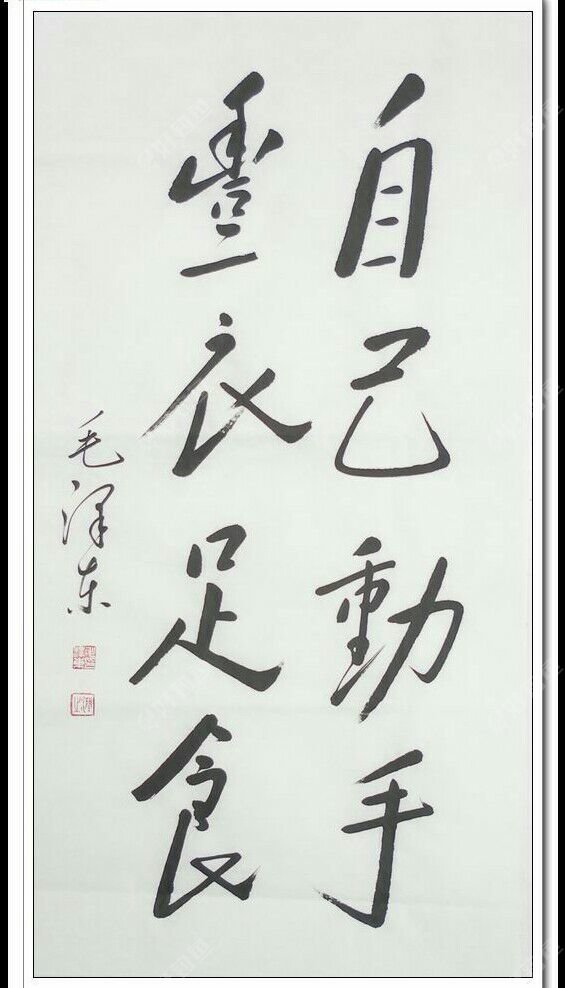 自己動手
豐衣足食
毛泽东